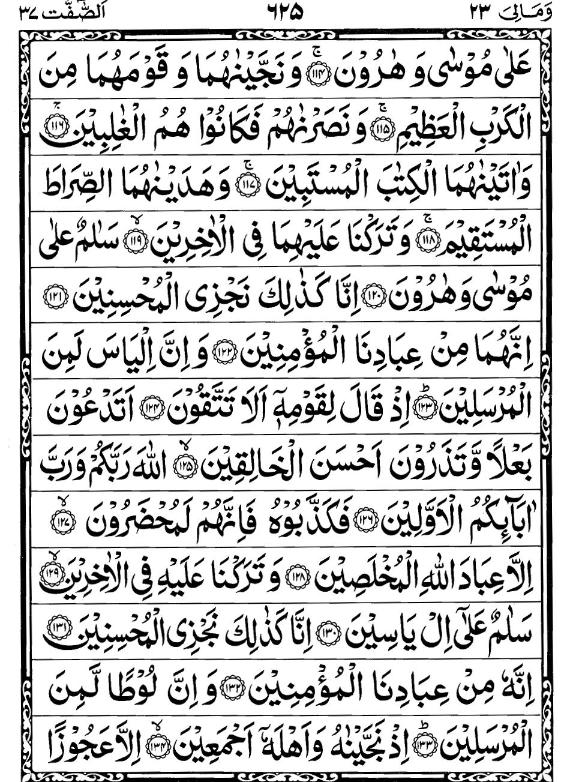 وَمَالِیَ ٢٣ ٦٢٥ اَلصّٰٓفّٰت ٣٧
عَلٰى مُوْسٰى وَ هٰرُوْنَ ﴿١١٤﴾ۚ وَ نَجَّيْنٰهُمَا وَ قَوْمَهُمَا مِنَ
الْكَرْبِ الْعَظِيْمِ ﴿١١٥﴾ۚ وَ نَصَرْنٰهُمْ فَكَانُوْا هُمُ الْغٰلِبِيْنَ ﴿١١٦﴾ۚ
وَاٰتَيْنٰهُمَا الْكِتٰبَ الْمُسْتَبِيْنَ ﴿١١٧﴾ۚ وَ هَدَيْنٰهُمَا الصِّرَاطَ
الْمُسْتَقِيْمَ ﴿١١٨﴾ۚ وَ تَرَكْنَا عَلَيْهِمَا فِى الْاٰخِرِيْنَ ﴿١١٩﴾ۙ سَلٰمٌ عَلٰى
مُوْسٰى وَهٰرُوْنَ ﴿١٢٠﴾ اِنَّا كَذٰلِكَ نَجْزِى الْمُحْسِنِيْنَ ﴿١٢١﴾
اِنَّهُمَا مِنْ عِبَادِنَا الْمُؤْمِنِيْنَ ﴿١٢٢﴾ وَ اِنَّ اِلْيَاسَ لَمِنَ
الْمُرْسَلِيْنَ ﴿١٢٣﴾ؕ اِذْ قَالَ لِقَوْمِهٖۤ اَلَا تَتَّقُوْنَ ﴿١٢٤﴾ اَتَدْعُوْنَ
بَعْلًا وَّتَذَرُوْنَ اَحْسَنَ الْخَالِقِيْنَ ﴿١٢٥﴾ۙ اللّٰهَ رَبَّكُمْ وَرَبَّ
اٰبَآئِكُمُ الْاَوَّلِيْنَ ﴿١٢٦﴾ فَكَذَّبُوْهُ فَاِنَّهُمْ لَمُحْضَرُوْنَ ﴿١٢٧﴾ۙ
اِلَّا عِبَادَ اللّٰهِ الْمُخْلَصِيْنَ ﴿١٢٨﴾ وَ تَرَكْنَا عَلَيْهِ فِى الْاٰخِرِيْنَ ﴿١٢٩﴾ۙ
سَلٰمٌ عَلٰٓى اِلْ يَاسِيْنَ ﴿١٣٠﴾ اِنَّا كَذٰلِكَ نَجْزِى الْمُحْسِنِيْنَ ﴿١٣١﴾
اِنَّهٗ مِنْ عِبَادِنَا الْمُؤْمِنِيْنَ ﴿١٣٢﴾ وَ اِنَّ لُوْطًا لَّمِنَ
الْمُرْسَلِيْنَ ﴿١٣٣﴾ؕ اِذْ نَجَّيْنٰهُ وَاَهْلَهٗۤ اَجْمَعِيْنَ ﴿١٣٤﴾ۙ اِلَّا عَجُوْزًا